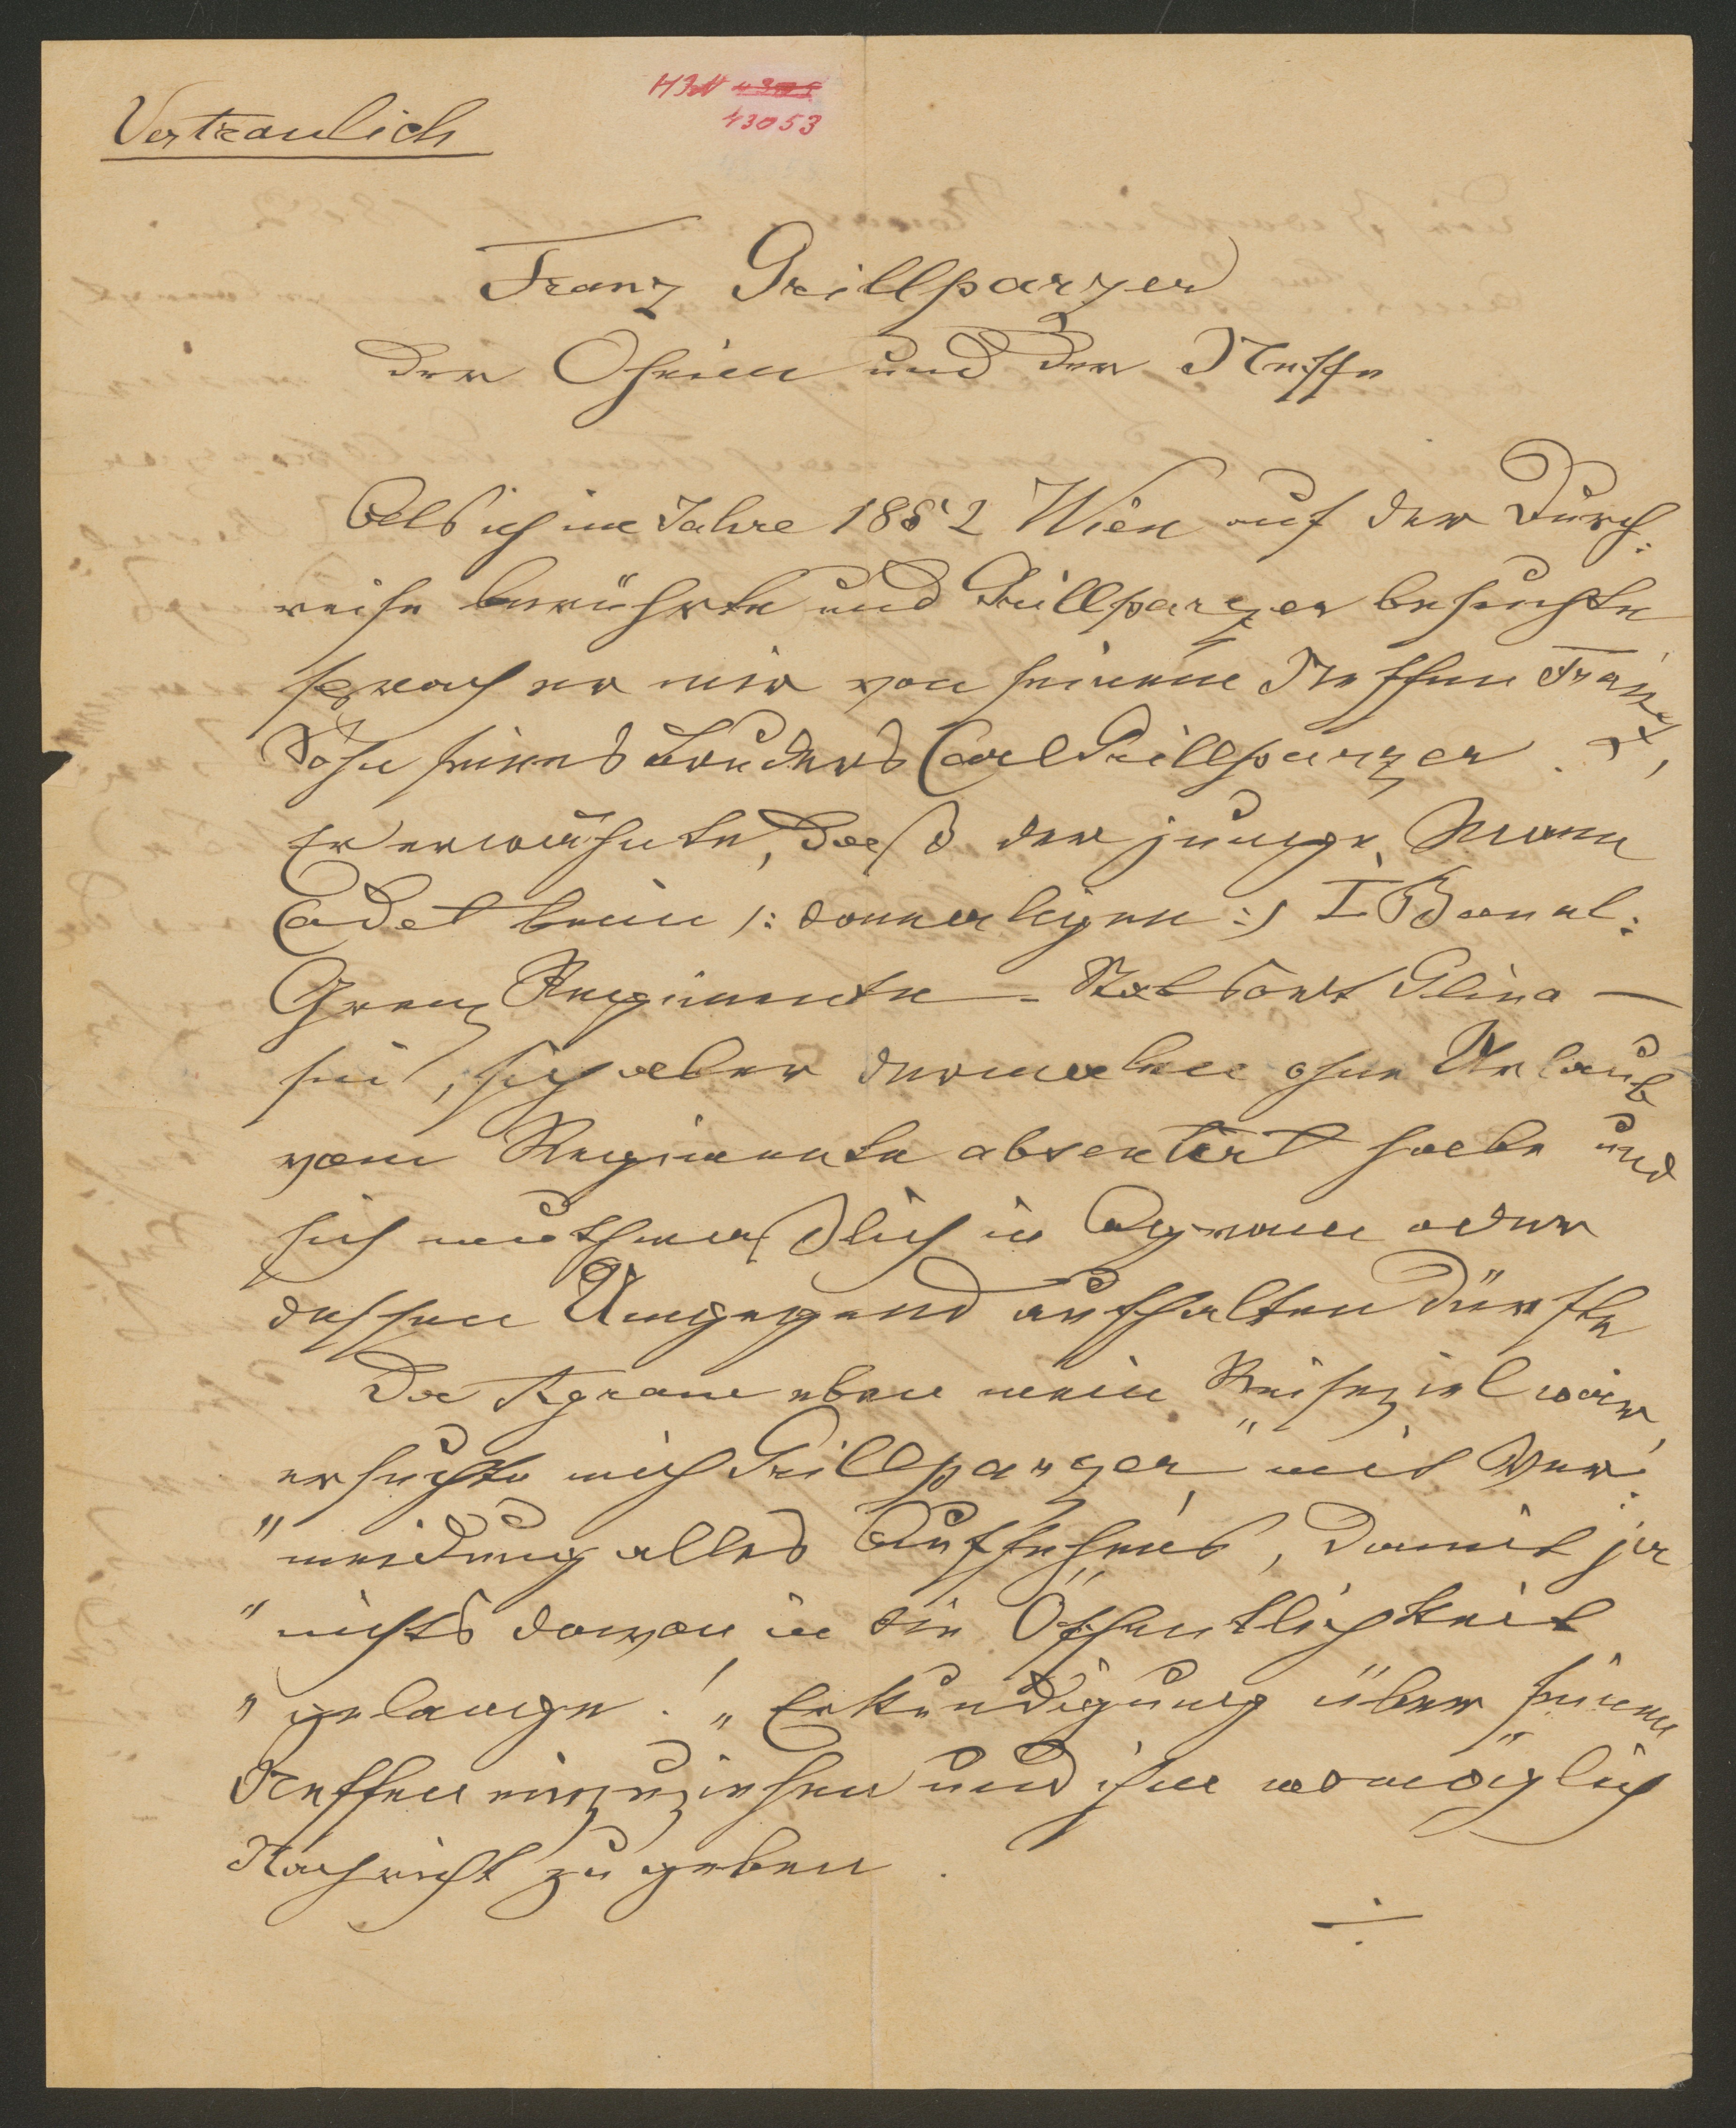 Vertraulich
HIN 4305
43053
Franz Grillparzer
der Oheim und der Neffe
Als ich im Jahre 1852 Wien auf der Durch:
reise berührte und Grillparzer besuchte
sprach er mir von seinem Neffen Franz,
Sohn seines Bruders Carl Grillparzer.
Er erwähnte, daß der junge Mann
Cadet beim /: damaligen :/ I Banal:
Grenz Regimente – Stabsort Glina –
sei, sich aber dermalen ohne Urlaub
vom Regimente absentirt habe und
sich muthmaßlich in Agram oder
dessen Umgegend aufhalten dürfte
Da Agram eben mein Reiseziel war,
ersuchte mich Grillparzer, „mit Ver:
"meidung alles Aufsehens, damit ja
"nichts davon in die Öffentlichkeit
"gelange!„ Erkundigung über seinen
Neffen einzuziehen und ihm womöglich
Nachricht zu geben.